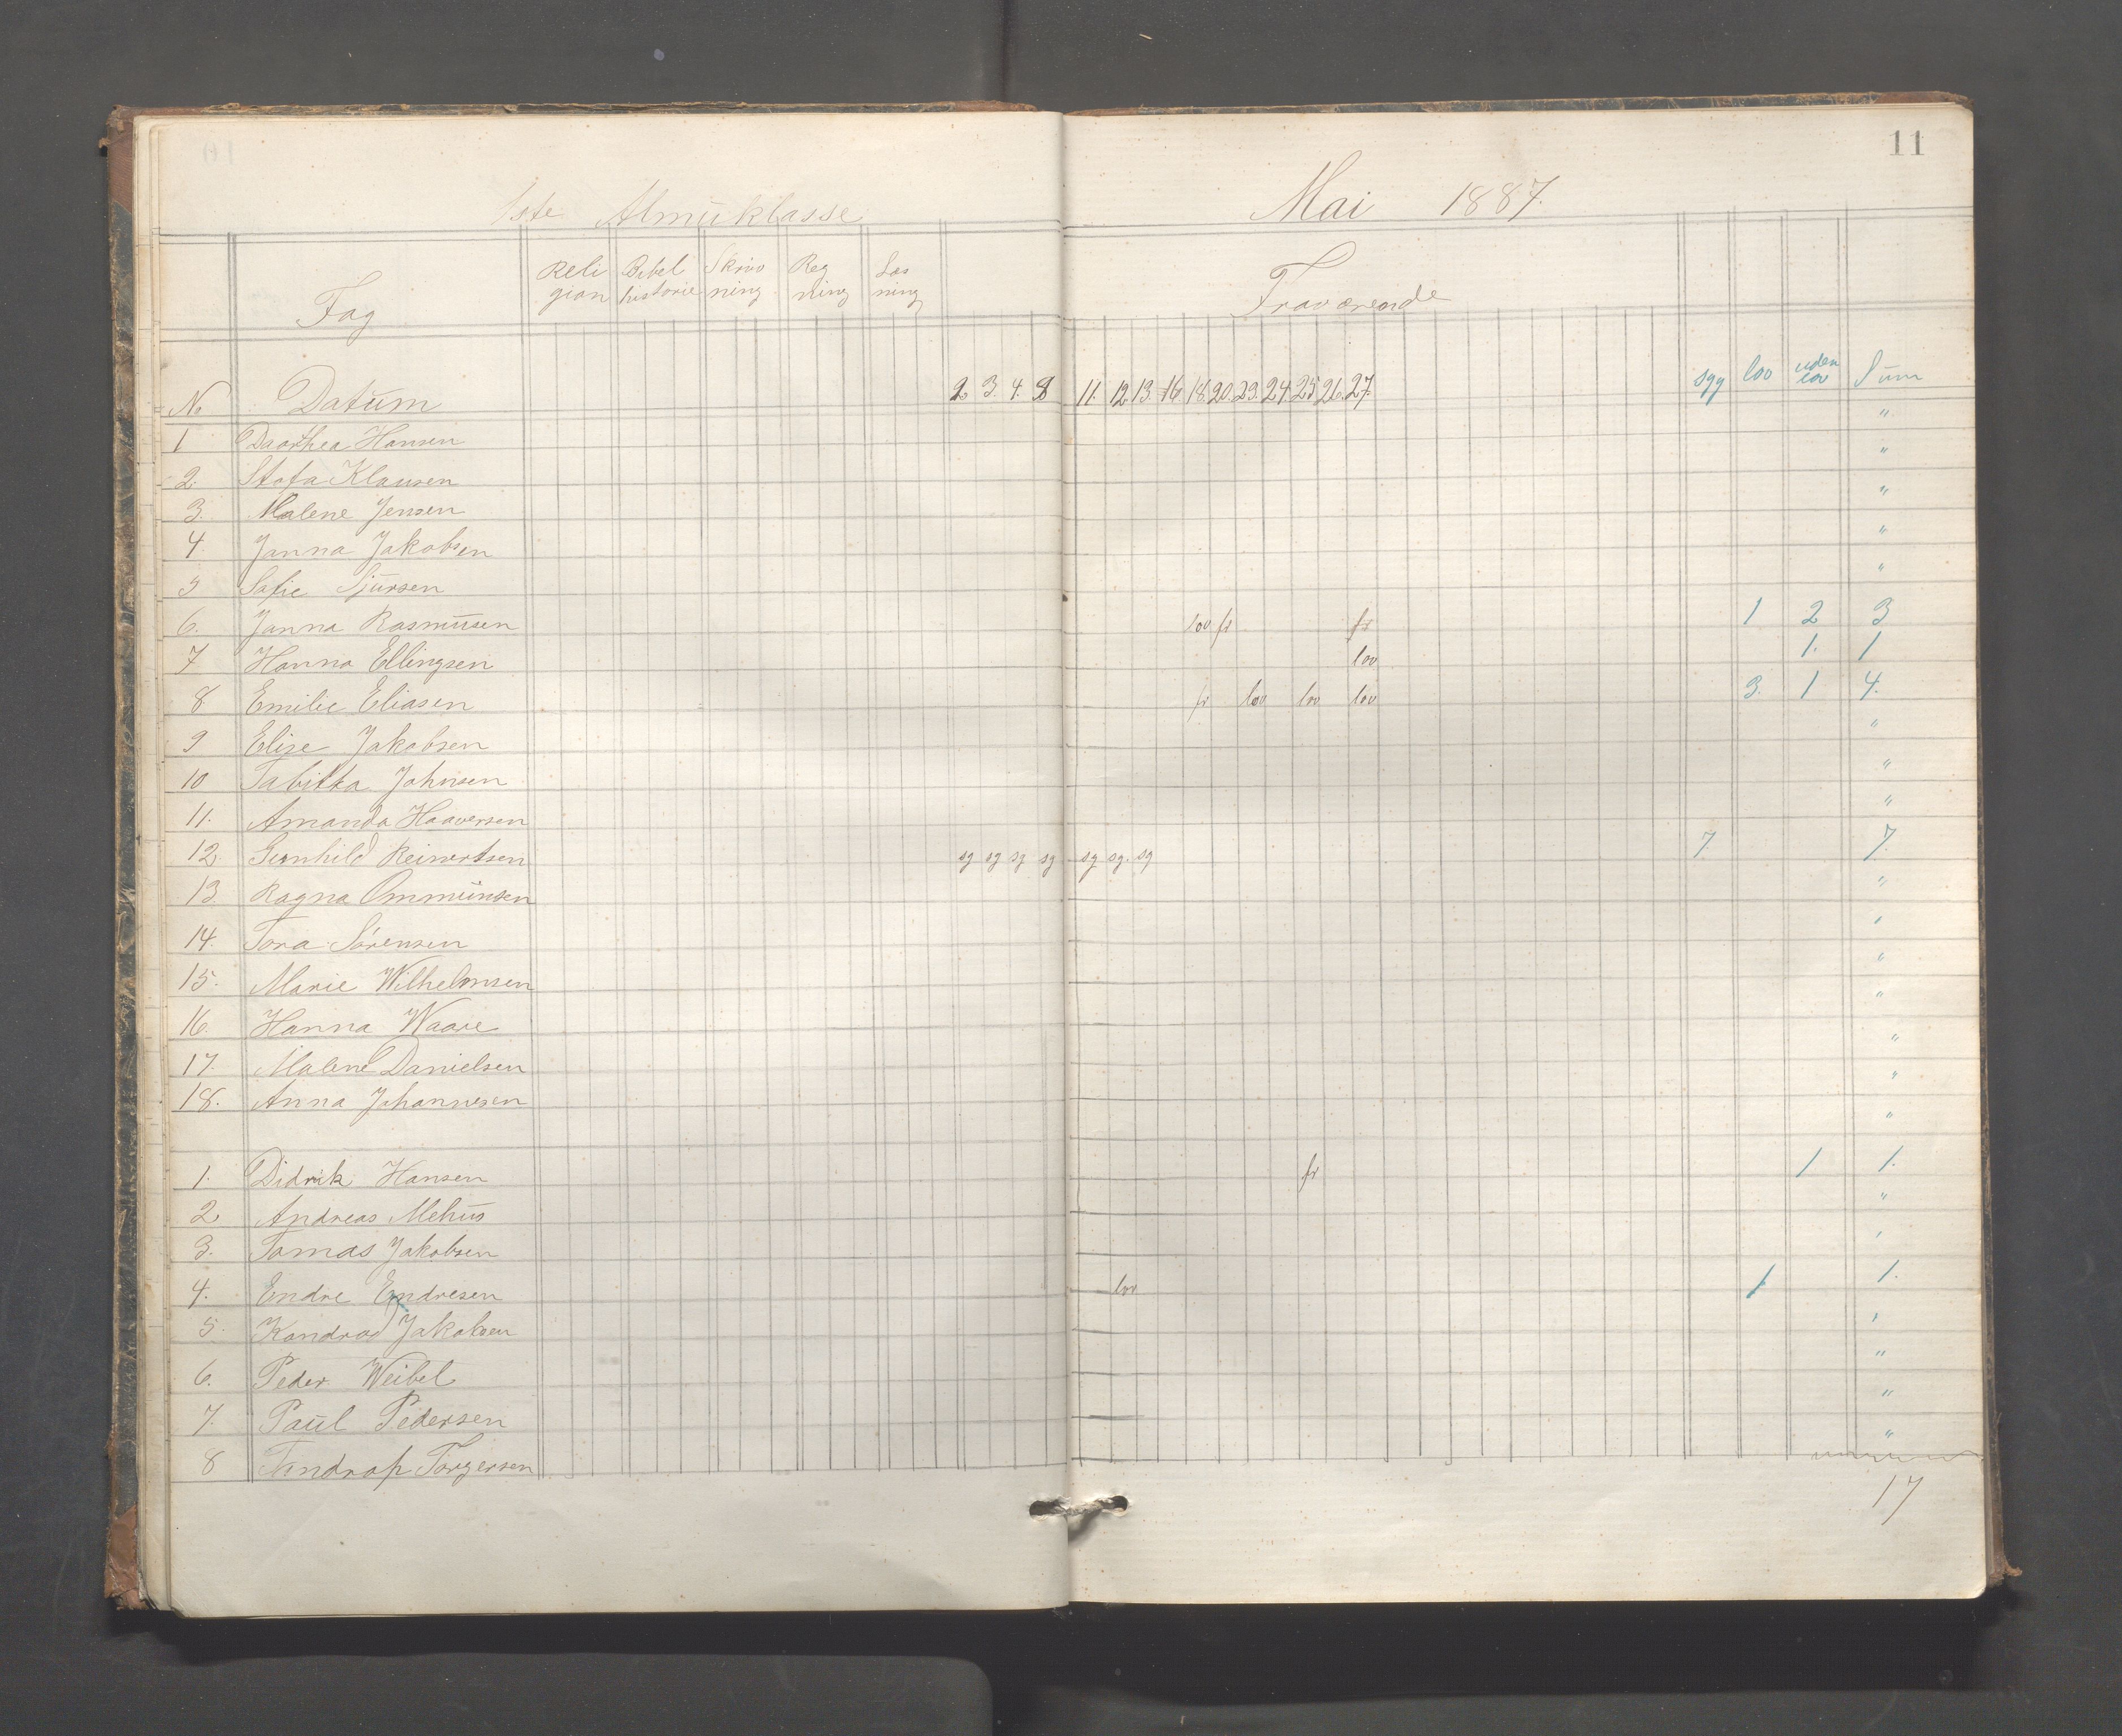 11
1ste Almuklasse Mai 1887.
Fag Reli gion Bibel historie Skriv ning Reg ning Læs ning Fraværende
No Datum 2. 3. 4. 9 11. 12. 13. 16. 18. 20. 23. 24. 25. 26. 27. syg lov uden lov Sum
1 Daarthea Hansen "
2. Stofa Klausen "
3. Malene Jensen "
4 Janna Jakobsen "
5 Sofie Sjursen "
6. Janna Rasmusen lov fr fr 1 2 3
7 Hanna Ellingsen lov 1. 1
8 Emilie Eliasen fr lov lov lov 3. 1 4.
9 Elise Jakobsen "
10 Tabitta Johnsen "
11. Amanda Haaversen "
12 Gunhild Reinertsen sy sy sy sy sy sy. sy 7. 7
13 Ragna Ommunsen "
14. Tora Sørensen "
15. Marie Wilhelmsen "
16. Hanna Waave "
17. Malene Danielsen "
18. Anna Johannesen "
1. Didrik Hansen fr 1 1.
2 Andreas Mehus "
3. Tomas Jakobsen "
4. Endre Endresen lov 1 1.
5. Kondrad Jakobsen "
6. Peder Weibel "
7. Paul Pedersen "
8 Torgersen "
17